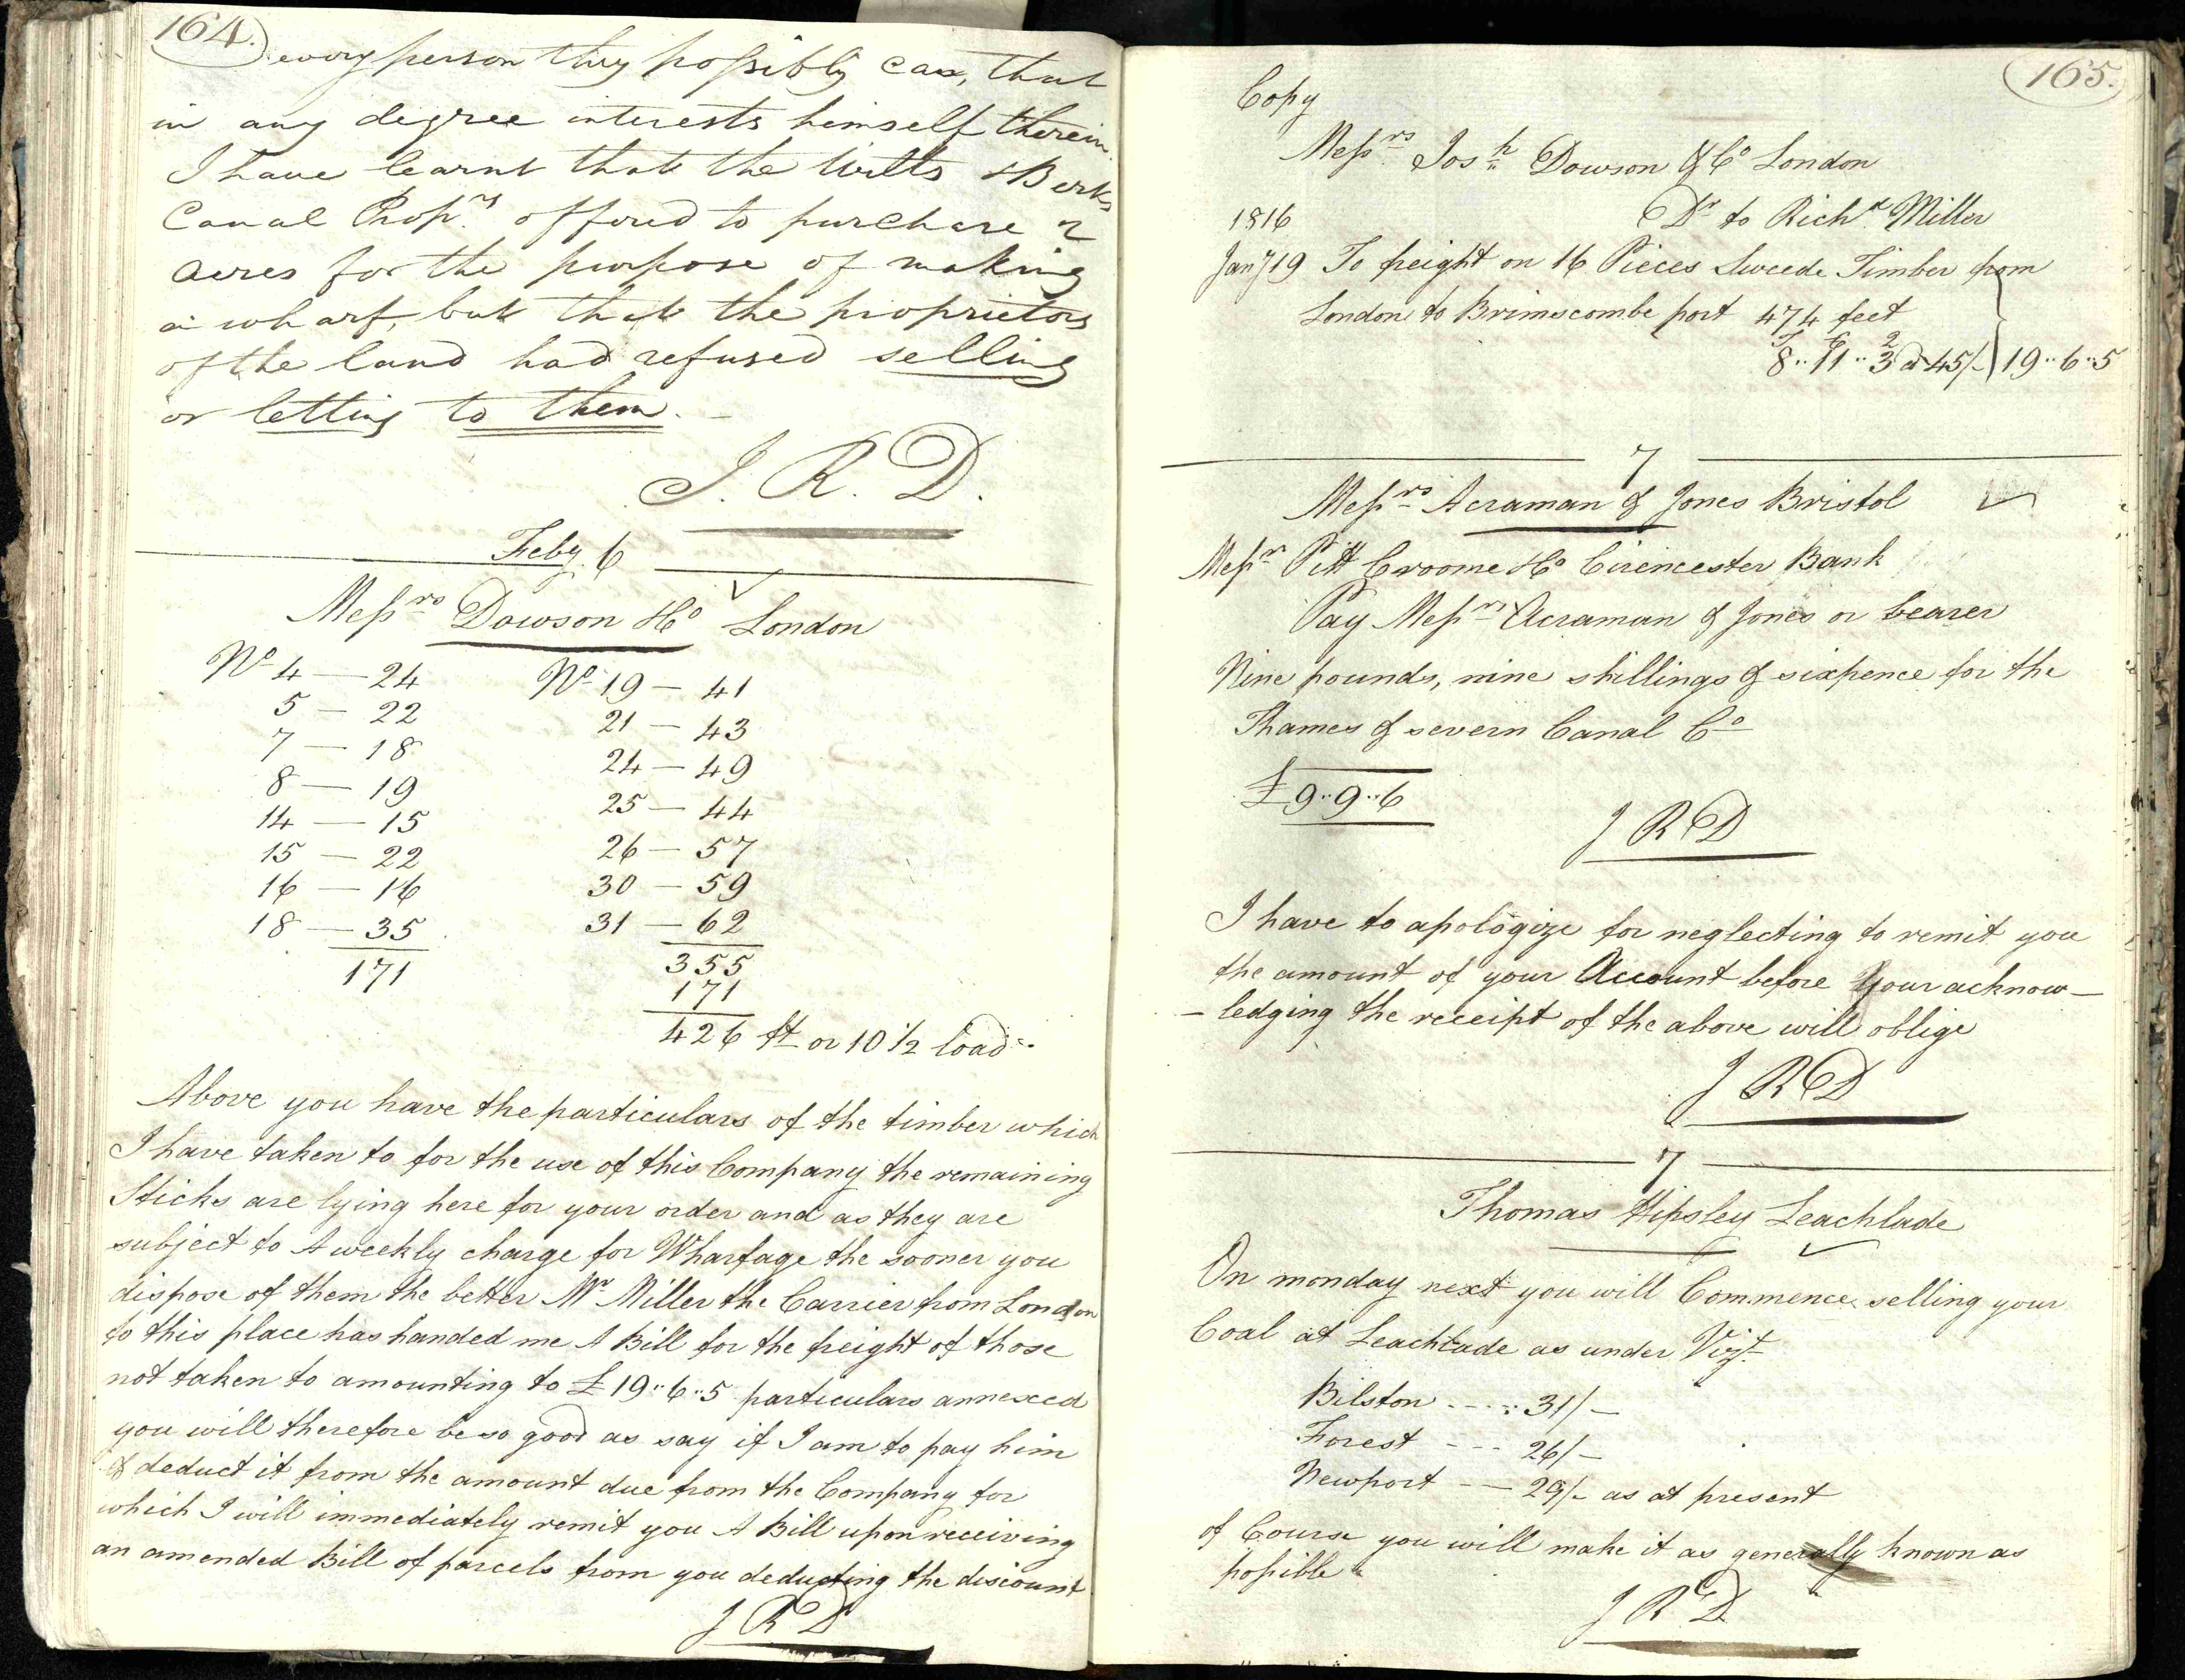 164.
every person they possibly can, that
in any degree interests himself therein.
I have learnt that the Wilts & Berks
Canal Prop.rs offered to purchase 2
acres for the purpose of making
a wharf, but that the proprietors
of the land had refused selling
or letting to them.
J. R. D.
Feby. 6
Messrs Dowson & Co London
No 4 — 24
5 — 22
7 — 18
8 — 19
14 — 15
15 — 22
16 — 16
18 — 35
171
No 19 — 41
21 — 43
24 — 49
25 — 44
26 — 57
30 — 59
31 — 62
355
171
426 ft or 10 1/2 load
Above you have the particulars of the timber which
I have taken to for the use of this Company the remaining
Sticks are lying here for your order and as they are
subject to A weekly charge for Wharfage the sooner you
dispose of them the better Mr Miller the Carrier from London
to this place has handed me A Bill for the freight of those
not taken to amounting to £19"6"5 particulars annexed
you will therefore be so good as say if I am to pay him
& deduct it from the amount due from the Company for
which I will immediately remit you A Bill upon receiving
an amended Bill of parcels from you deducting the discount
J R D
165.
Copy
Messrs Josh Dowson & Co London
1816 Dr to Richd Miller
Jany 19 To freight on 16 Pieces Sweede Timber from
London to Brimscombe port 474 feet
T C 2
8"11"3 @ 45/- 19"6"5
7
Messrs Acraman & Jones Bristol
Messrs Pitt Croome & Co Cirencester Bank
Pay Messrs Acraman & Jones or bearer
Nine pounds, nine shillings & sixpence for the
Thames & severn Canal Co
£9"9"6
J R D
I have to apologize for neglecting to remit you
the amount of your Account before Your acknow-
-ledging the receipt of the above will oblige
J R D
7
Thomas Hipsley Leachlade
On monday next you will Commence selling your
Coal at Leachlade as under Vizt.
Bilston ---- 31/-
Forest --- 26/-
Newport -- 29/- as at present
of Course you will make it as generally known as
possible
J R D